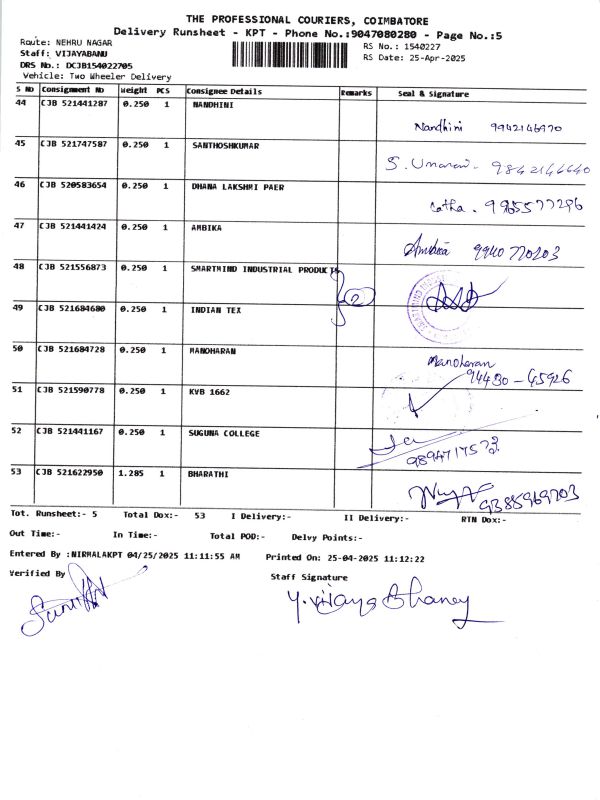 THE PROFESSIONAL COURIERS, COIMBATORE
Delivery Runsheet - KPT - Phone No.:9047080280 - Page No.:5
Route: NEHRU NAGAR
RS No.: 1540227
Staff: VIJAYABANU
RS Date: 25-Apr-2025
DRS No.: DCJB154022705
Vehicle: Two Wheeler Delivery
S No Consignment No Weight PCS Consignee Details Remarks Seal & Signature
44 CJB 521441287 0.250 1 NANDHINI
Nandhini 9942146970
45 CJB 521747587 0.250 1 SANTHOSHKUMAR
9842146640
46 CJB 520583654 0.250 1 DHANA LAKSHMI PAER
Latha. 9965577296
47 CJB 521441424 0.250 1 AMBIKA
Ambika 9940770203
48 CJB 521556873 0.250 1 SMARTMIND INDUSTRIAL PRODUCTS
2
49 CJB 521684680 0.250 1 INDIAN TEX
50 CJB 521684728 0.250 1 MANOHARAN
Manoharan
94430-45926
51 CJB 521590778 0.250 1 KVB 1662
52 CJB 521441167 0.250 1 SUGUNA COLLEGE
53 CJB 521622950 1.285 1 BHARATHI
9385969703
Tot. Runsheet:- 5 Total Dox:- 53 I Delivery:- II Delivery:- RTN Dox:-
Out Time:- In Time:- Total POD:- Delvy Points:-
Entered By :NIRMALAKPT 04/25/2025 11:11:55 AM Printed On: 25-04-2025 11:12:22
Verified By
Staff Signature
Y. Vijaya Bhaney